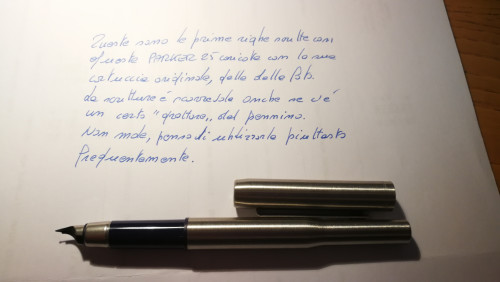 Queste sono le prime righe scritte con
questa PARKER 25 caricata con la sua
cartuccia originale, della della
La scrittura è scorrevole anche se c'è
un certo "grattare" del pennino.
Non male, penso di utilizzarla piuttosto
frequentemente.